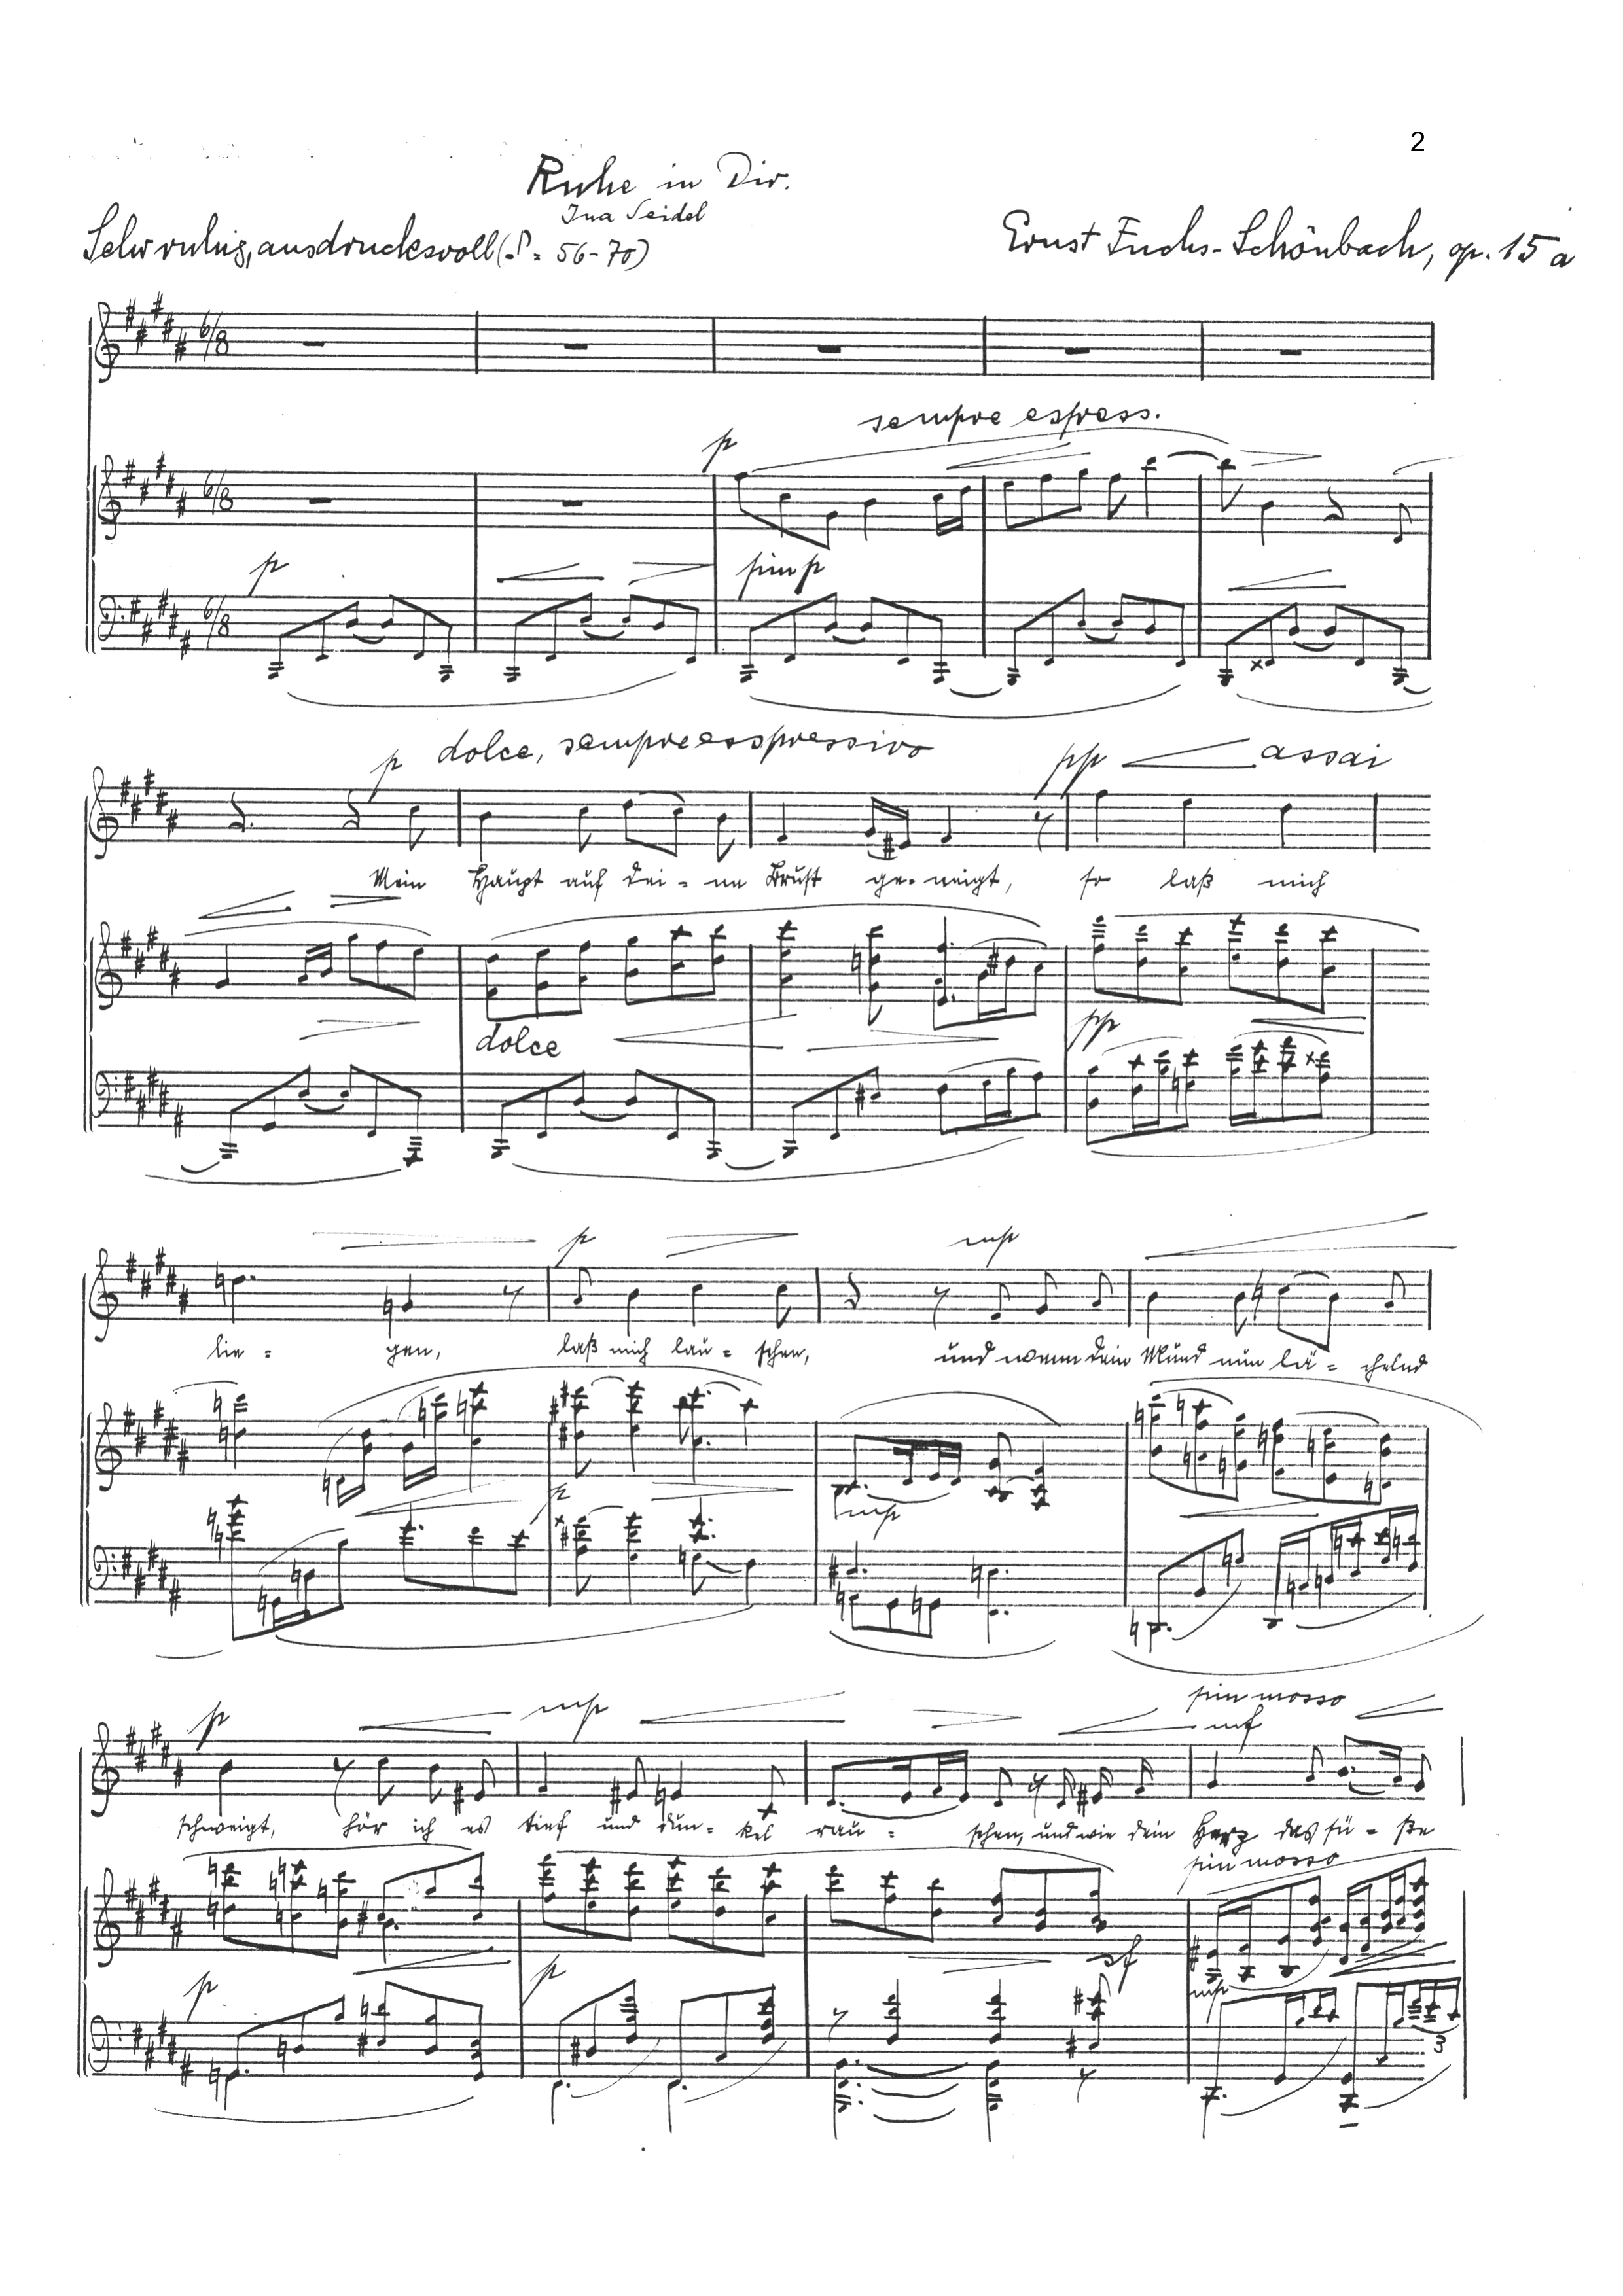 2
Ruhe in Dir.
Ina Seidel
Sehr ruhig, ausdrucksvoll (♪. = 56-70)
Ernst Fuchs-Schönbach, op. 15 a
6/8
sempre espress.
p
6/8
p
più p
6/8
p dolce, sempre esspressivo pp assai
Mein Haupt auf dei - ne Brust ge - neigt, so laß mich
dolce
pp
p mp
lie - gen, laß mich lau - schen, und wenn dein Mund nun lä - chelnd
p
mp
più mosso
p mp mf
schweigt, hör ich es tief und dun - kel rau - schen, und wie dein Herz das sü - ße
più mosso
sf
p p mp
3